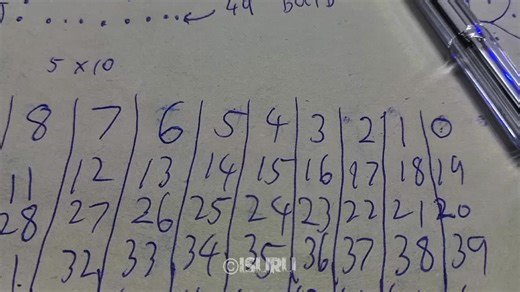 49
5 x 10
8 7 6 5 4 3 2 1 0
11 12 13 14 15 16 17 18 19
28 27 26 25 24 23 22 21 20
32 33 34 35 36 37 38 39
©ISURU